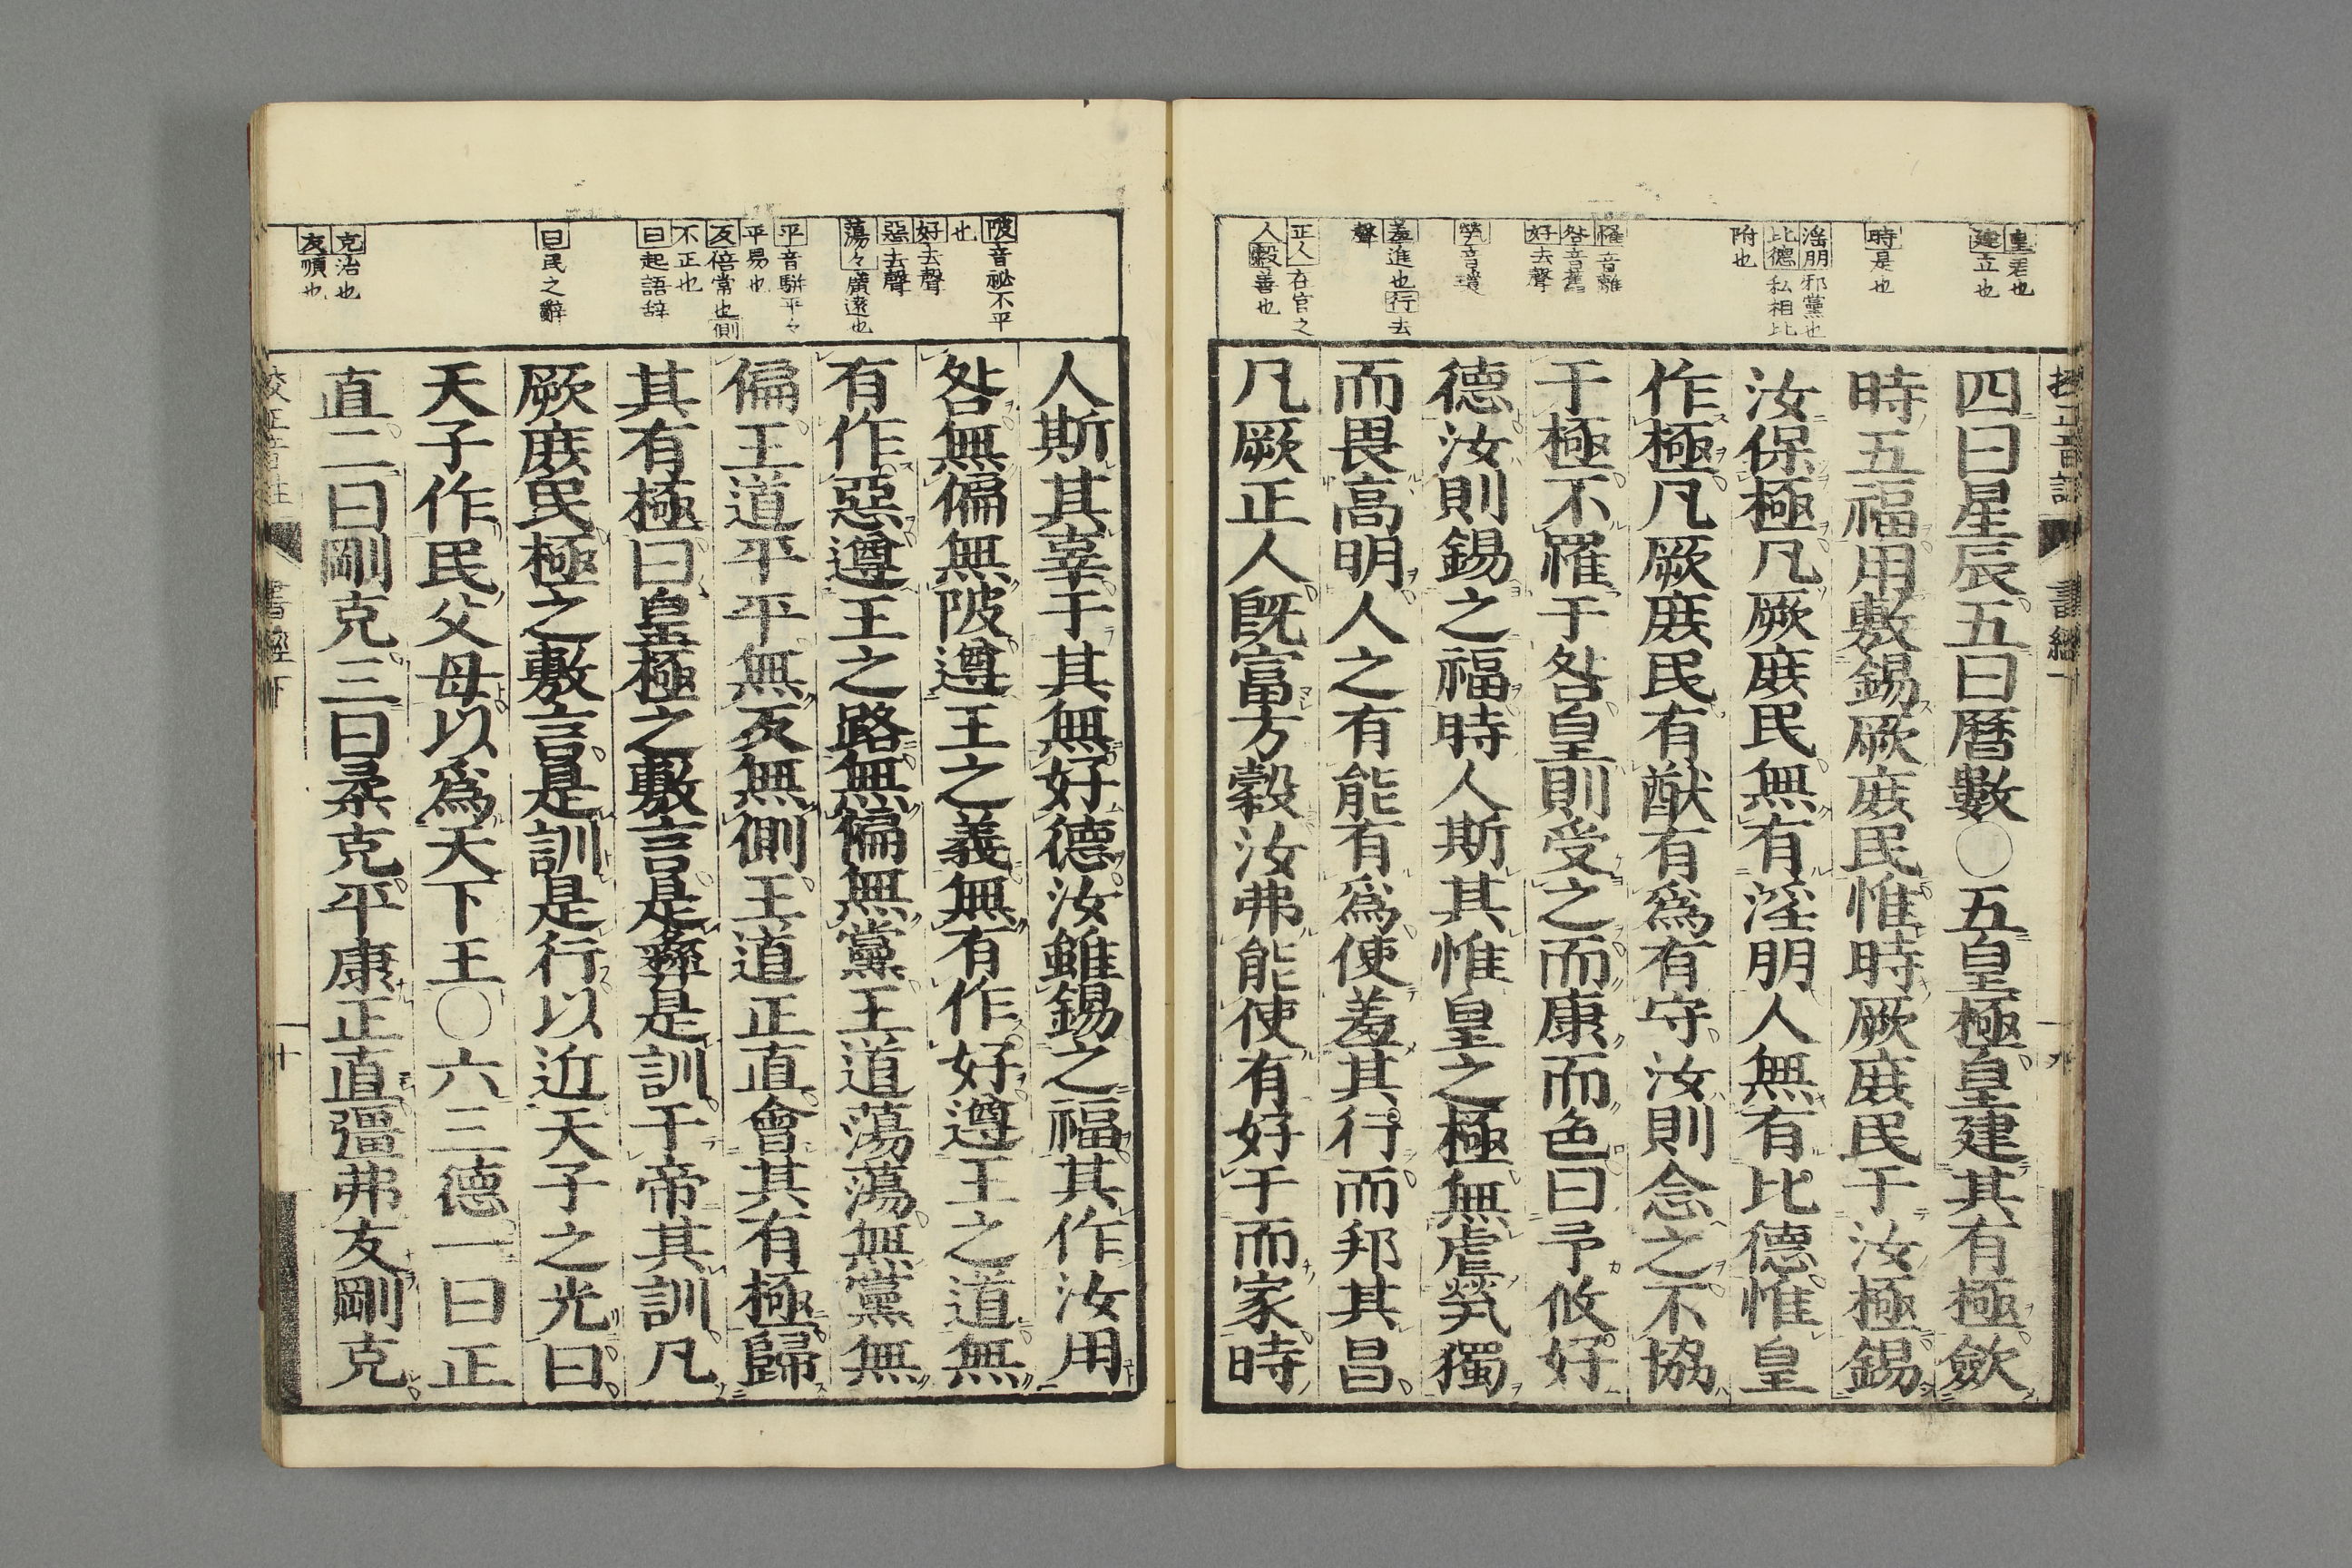 皇君也
建立也
時是也
淫朋邪黨也
比德私相比
附也
罹音離
咎音舊
好去聲
煢音瓊
羞進也行去
聲
正人在官之
人穀善也
書經下
四曰星辰五曰曆數〇五皇極皇建其有極斂
時五福用敷錫厥庶民惟時厥庶民于汝極錫
汝保極凡厥庶民無有淫朋人無有比德惟皇
作極凡厥庶民有猷有爲有守汝則念之不協
于極不罹于咎皇則受之而康而色曰予攸好
德汝則錫之福時人斯其惟皇之極無虐煢獨
而畏高明人之有能有爲使羞其行而邦其昌
凡厥正人既富方穀汝弗能使有好于而家時
陂音祕不平
也
好去聲
惡去聲
蕩々廣遠也
平音駢平々
平易也
反倍常也側
不正也
曰起語辞
曰民之辭
克治也
友順也
人斯其辜于其無好德汝雖錫之福其作汝用
咎無偏無陂遵王之義無有作好遵王之道無
有作惡遵王之路無偏無黨王道蕩蕩無黨無
偏王道平平無反無側王道正直會其有極歸
其有極曰皇極之敷言是彝是訓于帝其訓凡
厥庶民極之敷言是訓是行以近天子之光曰
天子作民父母以爲天下王〇六三德一曰正
直二曰剛克三曰柔克平康正直彊弗友剛克
校正音註 書經下 十